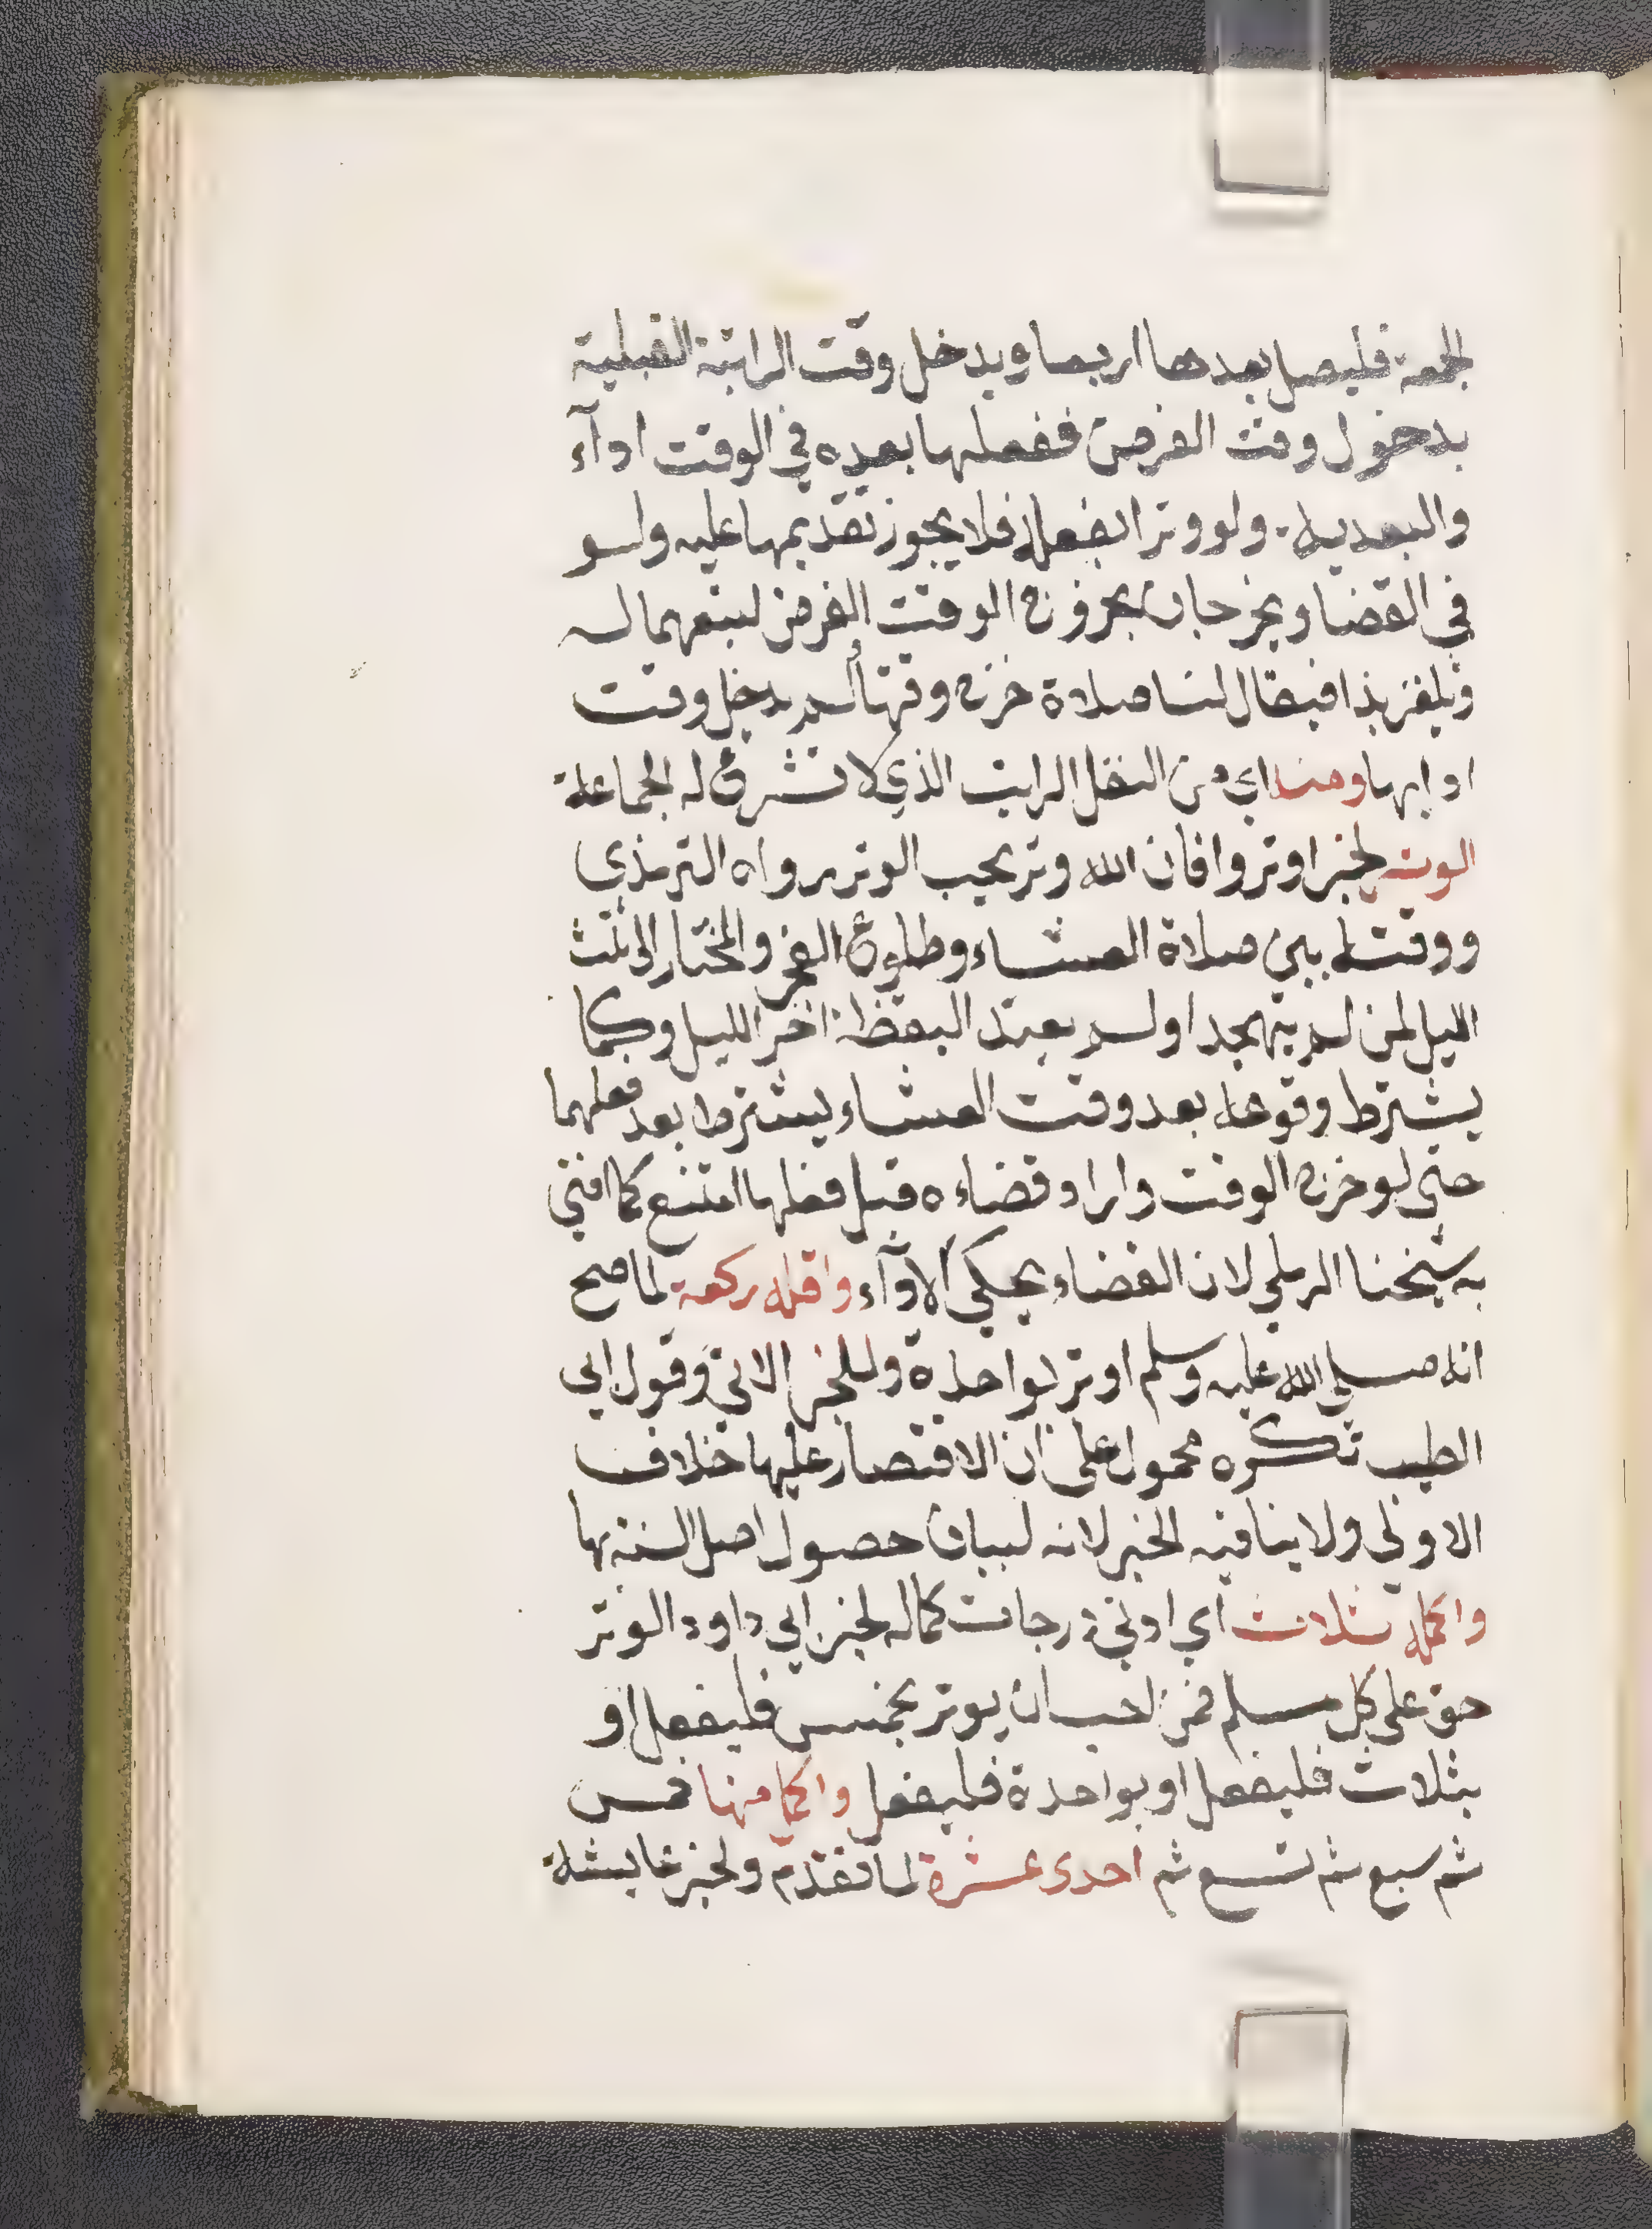 الجمعة فليصل بعدها اربعا ويدخل وقت الراتبة القبلية
بدخول وقت الفرض ففعلها بعده في الوقت ادآء
والبعدية ولو وترا بفعله فلا يجوز تقديمها عليه ولو
في القضا ويخرجان بخروج الوقت الفرض لتبعهما له
ويلغز بذا فيقال لنا صلاة خرج وقتها لم يدخل وقت
ادايها ومنه اي من النفل الراتب الذي لا تشرع له الجماعة
الوتر لخبر اوتروا فان الله وتر يحب الوتر رواه الترمذي
ووقته بين صلاة العشاء وطلوع الفجر والمختار الى ثلث
الليل لمن لم يتهجد او لم يعتد اليقظة اخر الليل وكما
يشترط وقوعه بعد وقت العشاء يشترط بعد فعلهما
حتى لو خرج الوقت واراد قضاءه قبل فعلها امتنع كما افتي
به شيخنا الرملي لان القضاء يحكي الادآء واقله ركعة لما صح
انه صلى الله عليه وسلم اوتر بواحدة وللخبر الاتي وقول ابي
الطيب تكره محمول على ان الاقتصار عليها خلاف
الاولي ولا ينافيه الخبر لانه لبيان حصول اصل السنة بها
واكمله ثلاث اي ادني درجات كماله لخبر ابي داود الوتر
حق على كل مسلم فمن احب ان يوتر بخمس فليفعل او
بثلاث فليفعل او بواحدة فليفعل واكما منها خمس
ثم سبع ثم تسع ثم احدى عشرة لما تقدم ولخبر عايشة